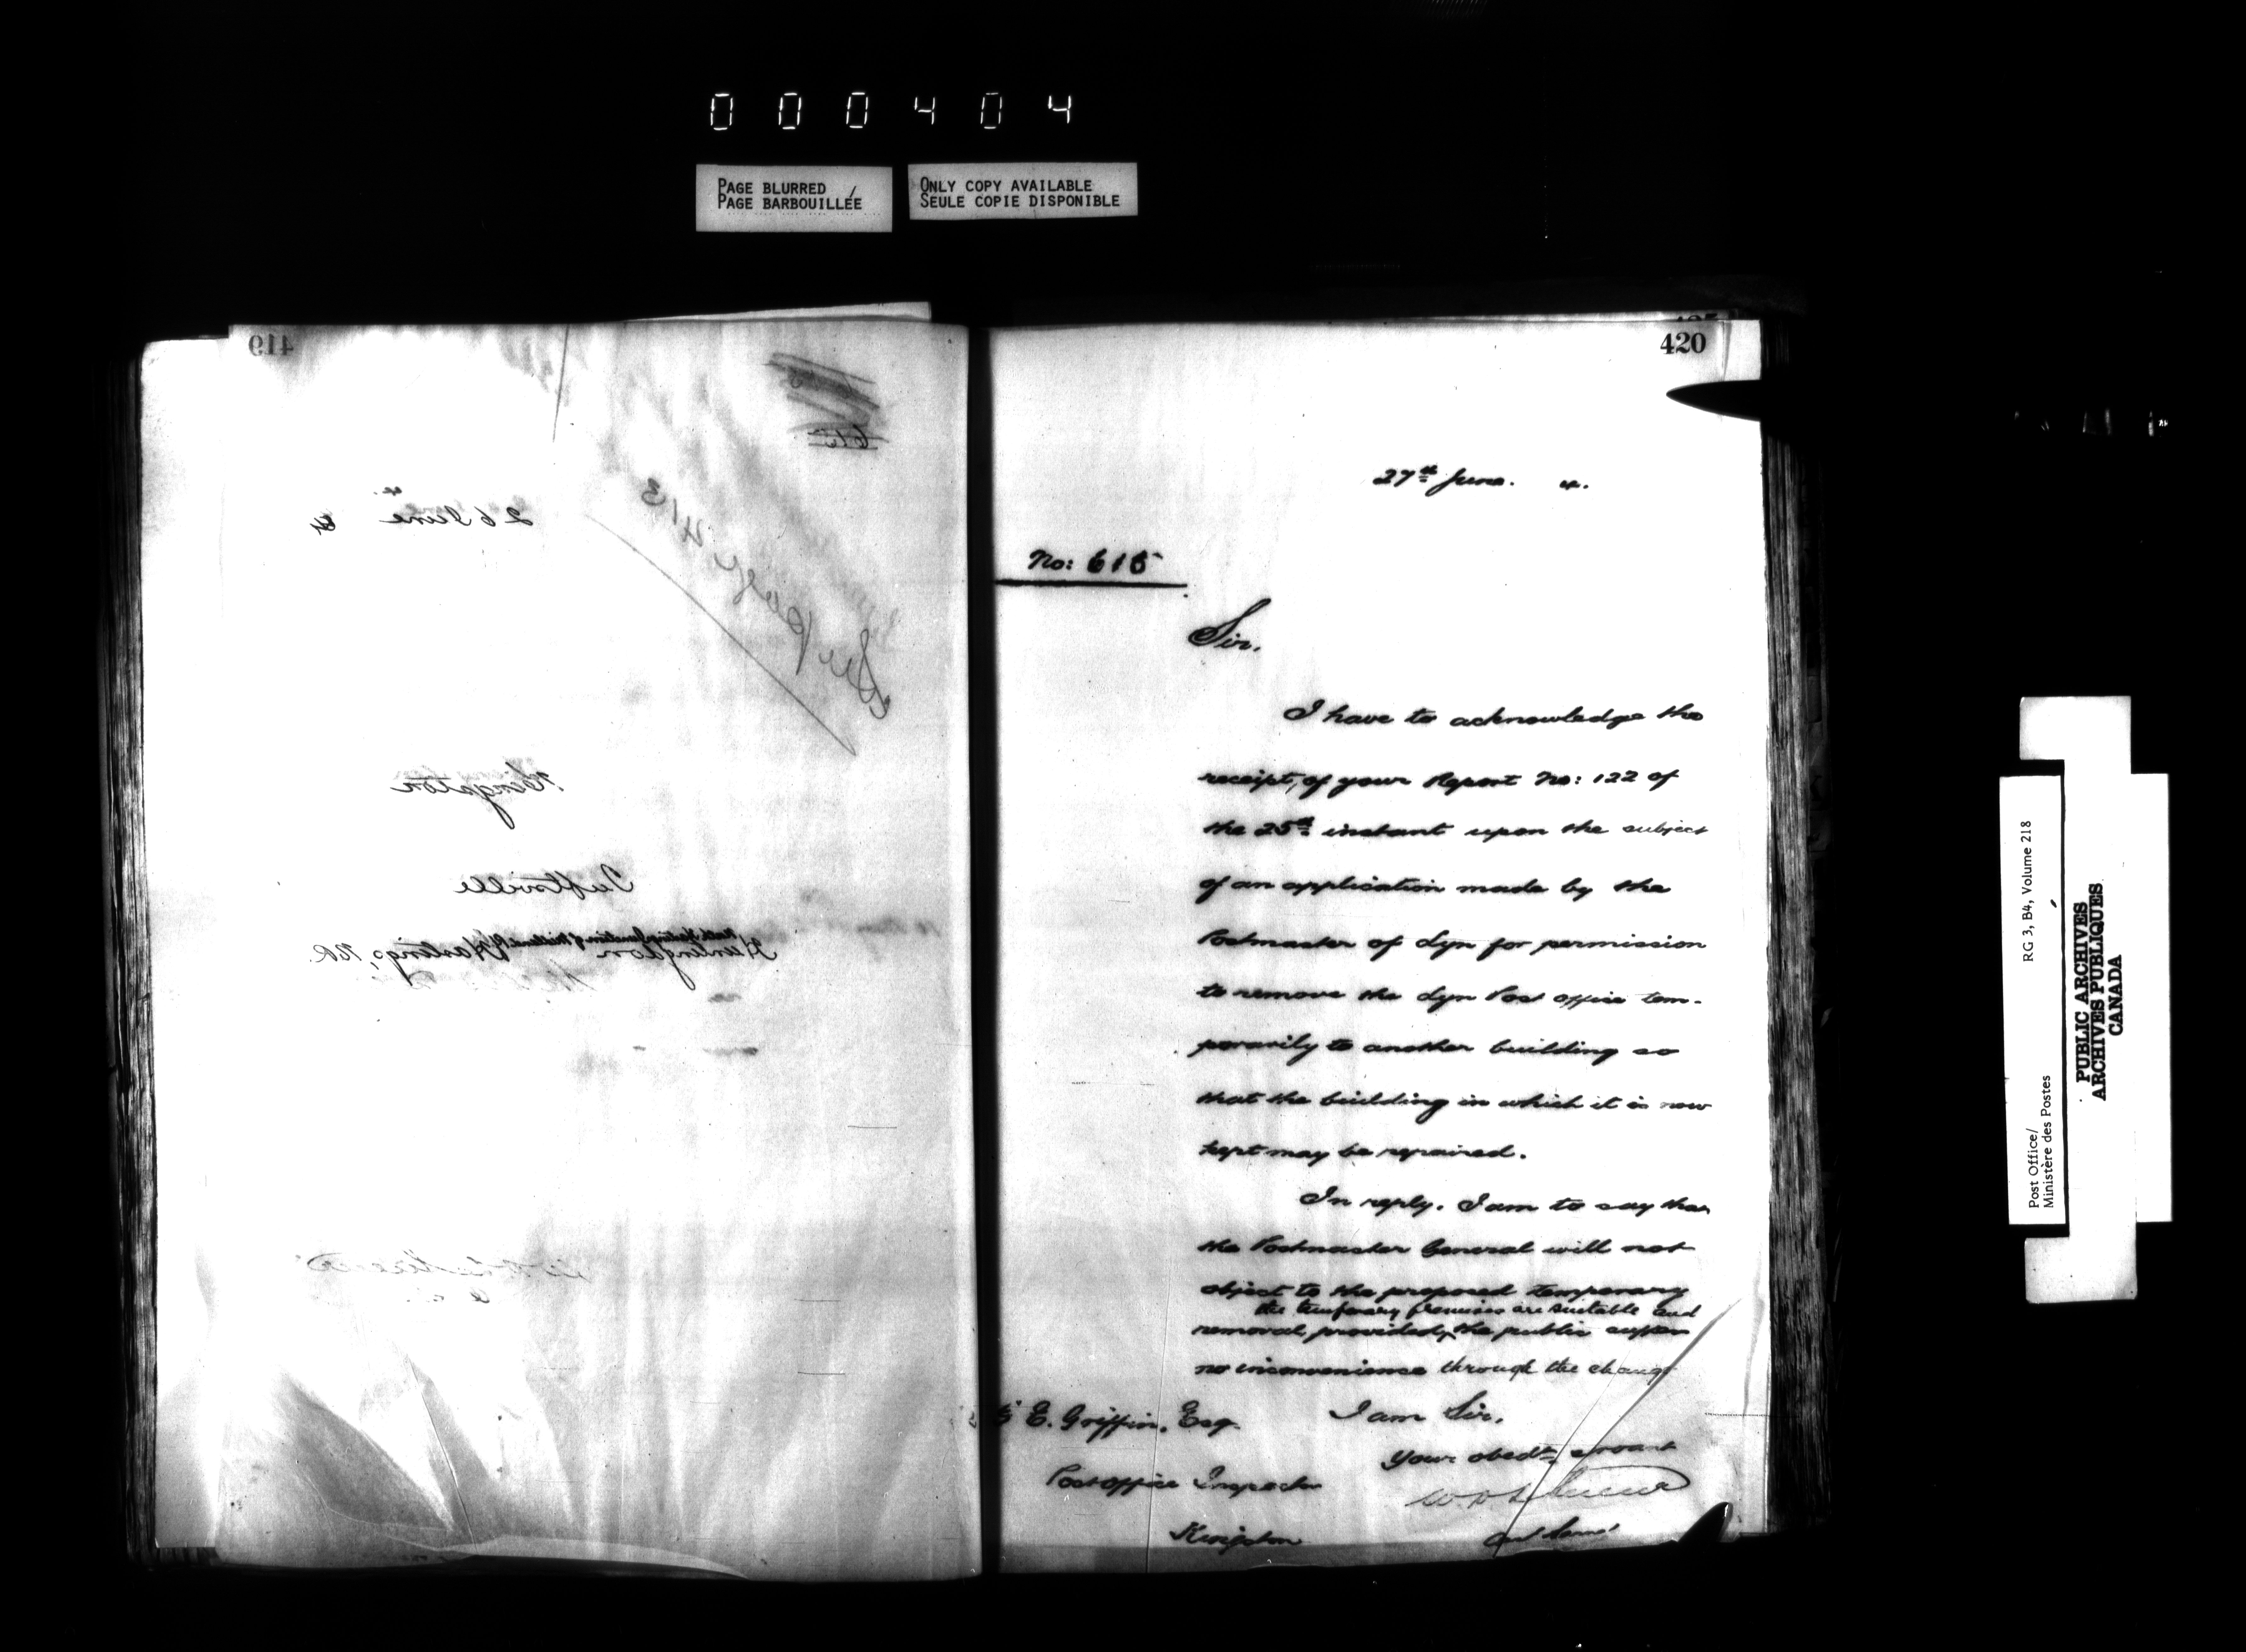 000404
PAGE BLURRED
PAGE BARBOUILLÉE
ONLY COPY AVAILABLE
SEULE COPIE DISPONIBLE
419
615
26 June 4
See page 413
Kingston
Tuftsville
Huntingdon Hastings, N.R.
420
27th June. 4.
No: 615
Sir.
I have to acknowledge the
receipt, of your Report No: 122 of
the 25th instant upon the subject
of an application made by the
Postmaster of Lyn for permission
to remove the Lyn Post office tem-
porarily to another building so
that the building in which it is now
kept may be repaired.
In reply. I am to say that
the Postmaster General will not
object to the proposed temporary
the temporary premises are suitable and
removal, provided, the public suffer
no inconvenience through the change
I am Sir.
E. Griffin. Esq.
Your obedt. servant
Post office Inspector
Kingston
RG 3, B4, Volume 218
Post Office/
Ministère des Postes
PUBLIC ARCHIVES
ARCHIVES PUBLIQUES
CANADA